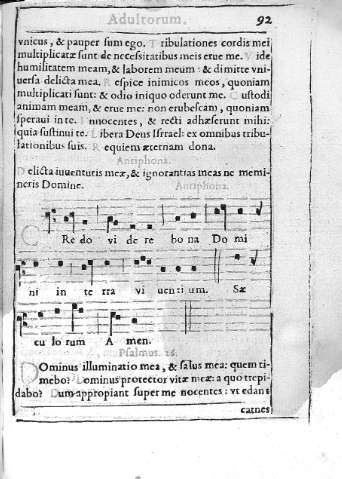 Adultorum. 92
vnicus, & pauper sum ego. Tribulationes cordis mei
multiplicatæ sunt: de necessitatibus meis erue me. Vide
humilitatem meam, & laborem meum: & dimitte vni-
uersa delicta mea. Respice inimicos meos, quoniam
multiplicati sunt: & odio iniquo oderunt me. Custodi
animam meam, & erue me: non erubescam, quoniam
speraui in te. Innocentes, & recti adhæserunt mihi:
quia sustinui te. Libera Deus Israel: ex omnibus tribu-
lationibus suis. Requiem æternam dona.
Antiphona.
Delicta iuuentutis meæ, & ignorantias meas ne memi-
neris Domine. Antiphona.
CRe do vi de re bo na Do mi
ni in te rra vi uenti um. Sæ
cu lo rum A men.
Psalmus. 26.
Dominus illuminatio mea, & salus mea: quem ti-
mebo? Dominus protector vitæ meæ: a quo trepi-
dabo? Dum appropiant super me nocentes: vt edant
carnes